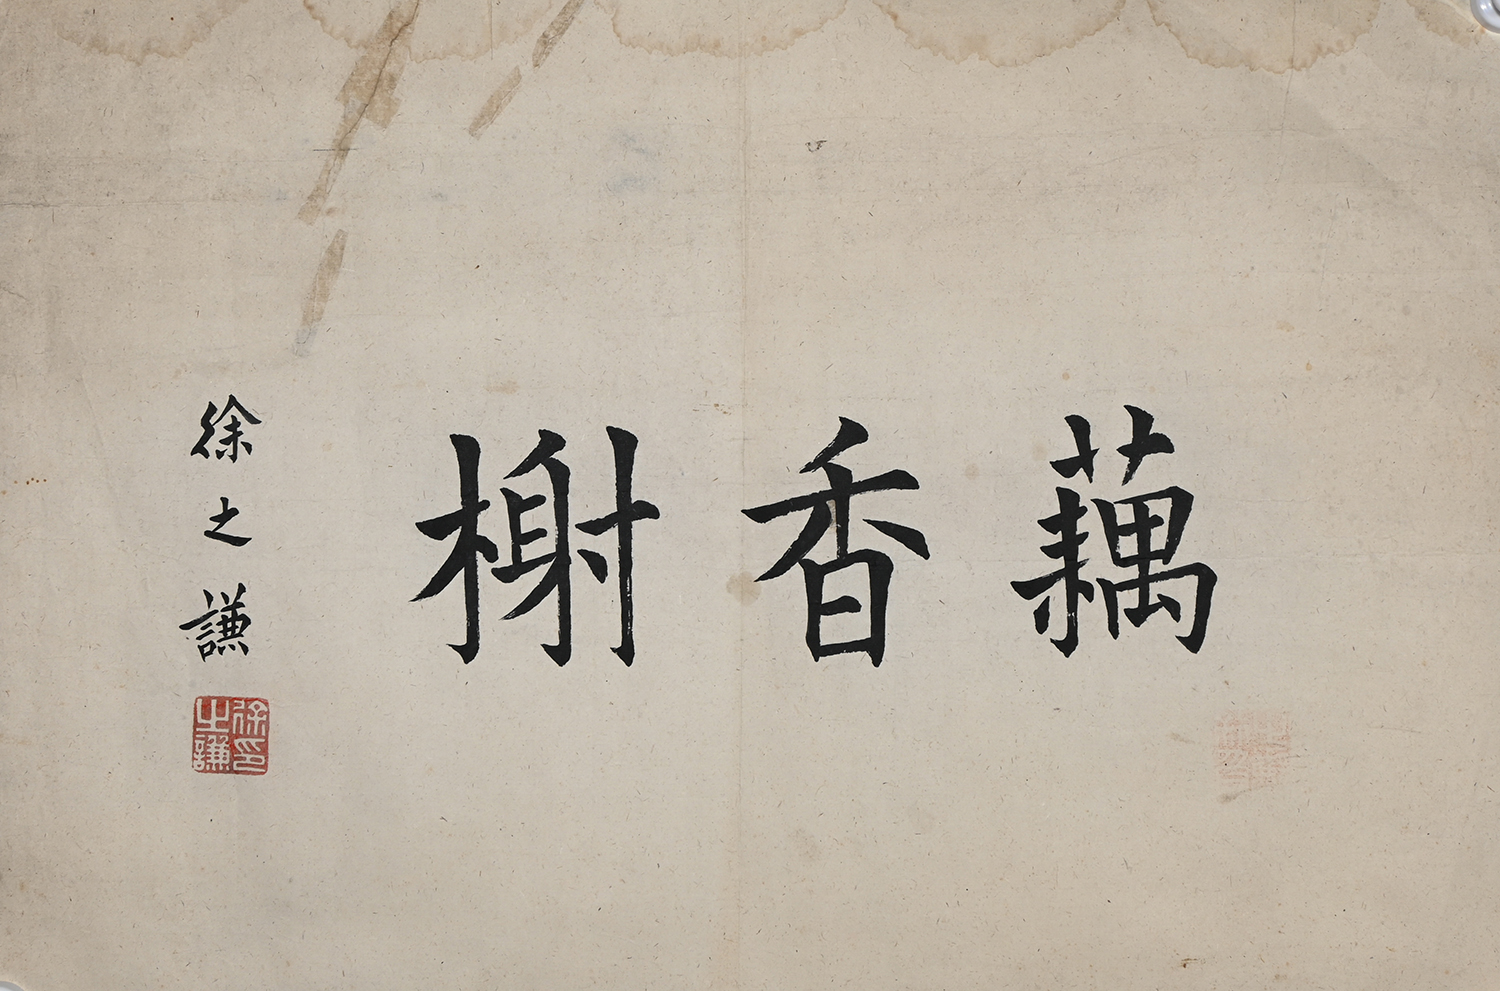 藕香榭
徐之謙
徐之謙印